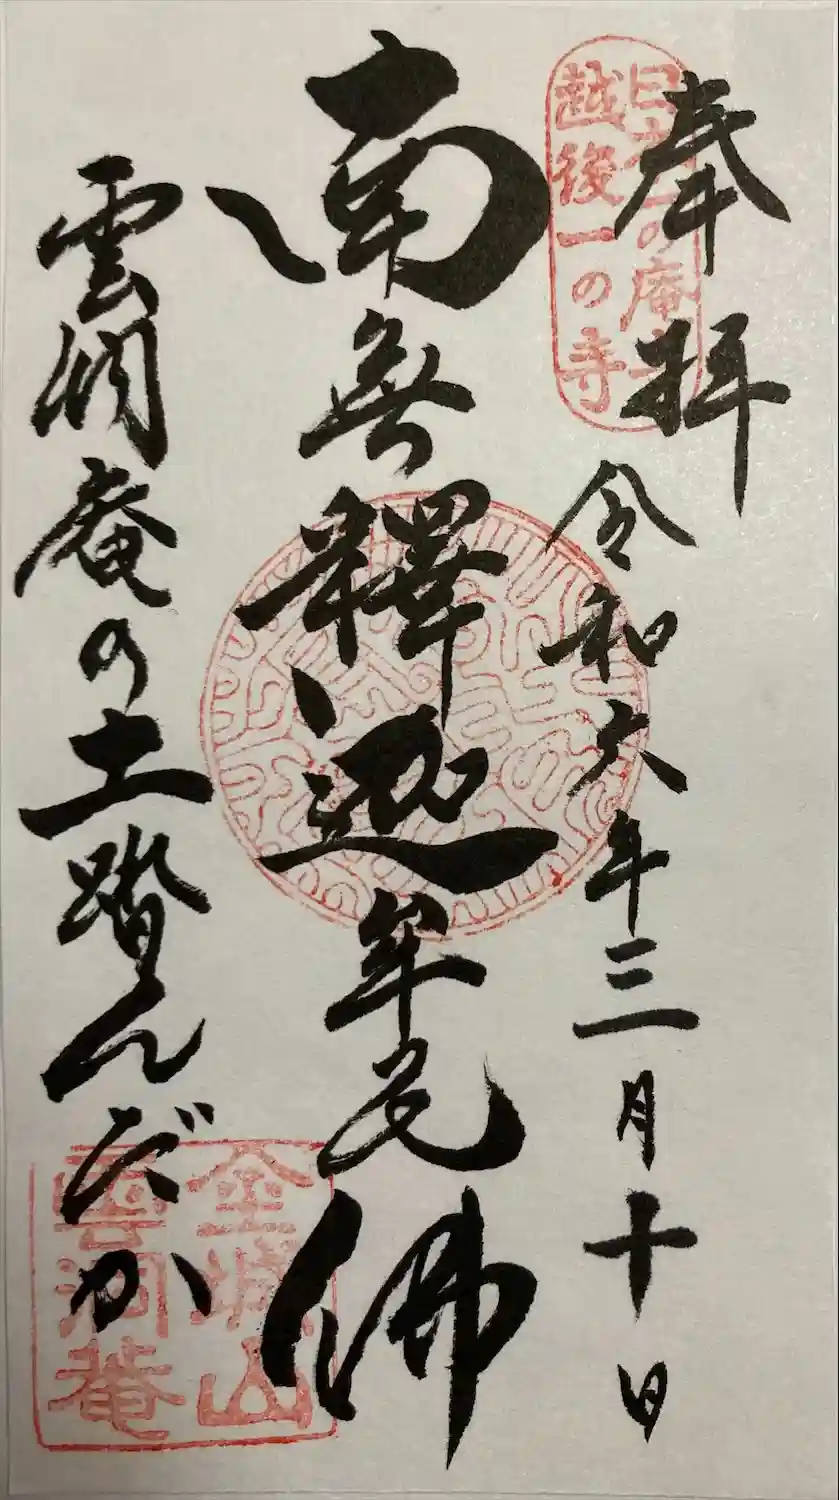 奉拝
令和六年三月十日
南無釋迦牟尼佛
雲洞庵の土踏んだか
日本一の庵寺
越後一の寺
金城山
雲洞庵